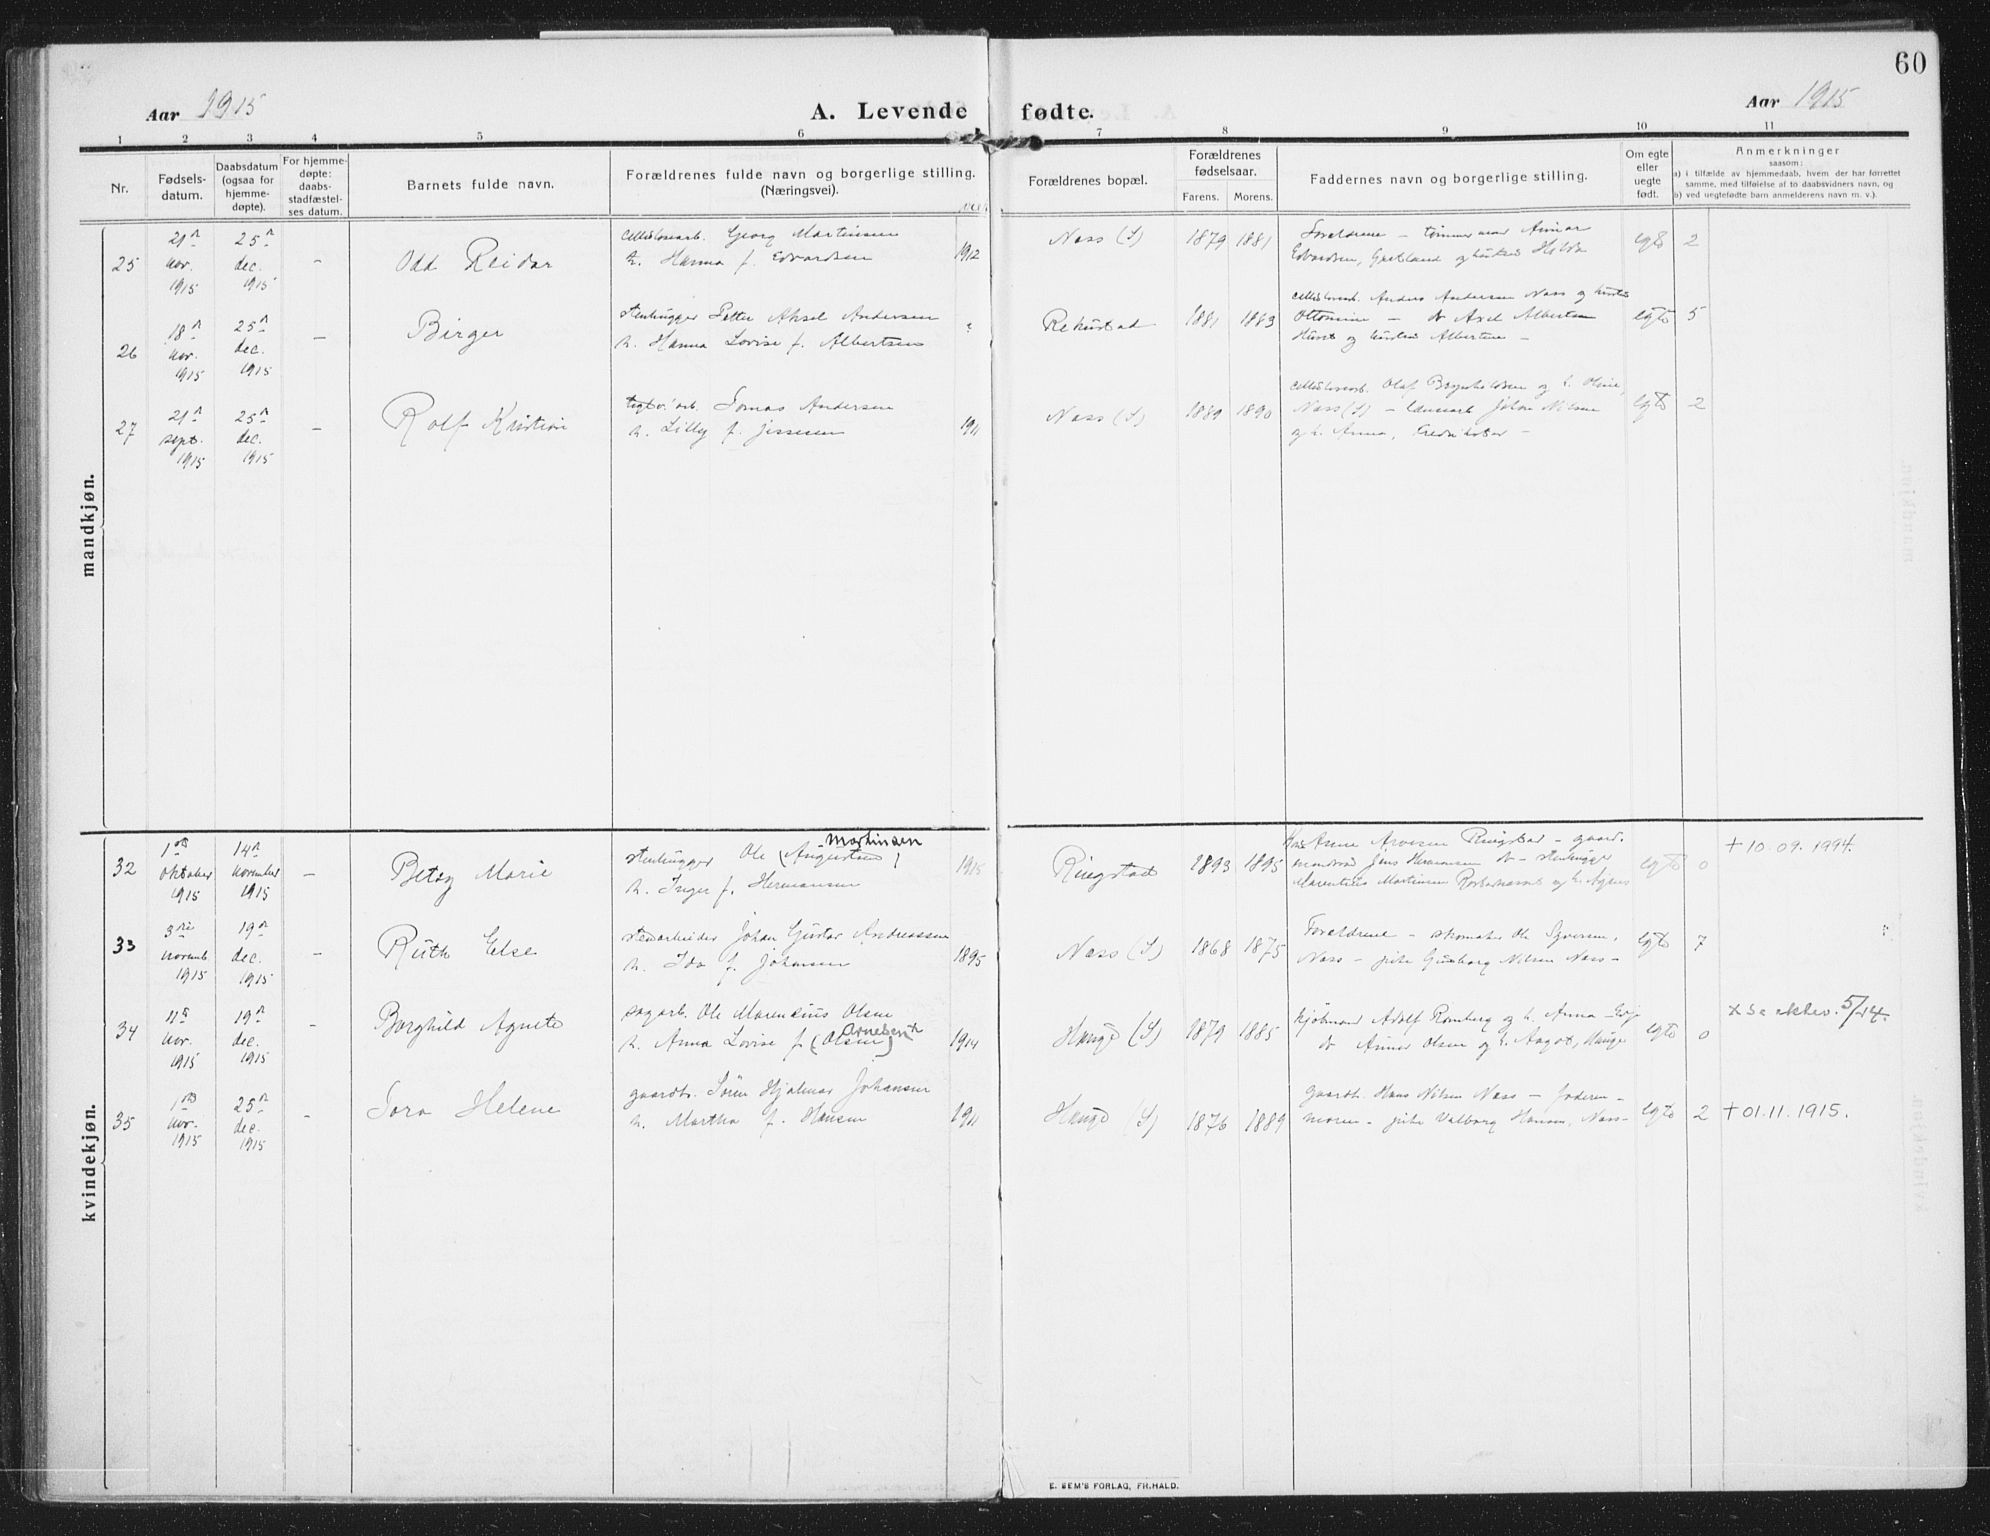 60
Aar 1915
A. Levende fødte.
Aar 1915
1 2 3 4 5 6 7 8 9 10 11
Nr.
Fødsels-
datum.
Daabsdatum
(ogsaa for
hjemme-
døpte).
For hjemme-
døpte:
daabs-
stadfæstel-
ses datum.
Barnets fulde navn.
Forældrenes fulde navn og borgerlige stilling.
(Næringsvei).
Forældrenes bopæl.
Forældrenes
fødselsaar.
Farens. Morens.
Faddernes navn og borgerlige stilling.
Om egte
eller
uegte
født.
Anmerkninger
saasom:
a) i tilfælde av hjemmedaab, hvem der har forrettet
samme, med tilføielse af to daabsvidners navn, og
b) ved uegtefødte barn anmelderens navn m. v.).
mandkjøn.
25
21 nov. 1915
25 dec. 1915
-
Odd Reidar
cellulosearb. Georg Martinsen
h. Hanna f. Edvardsen
1912
Næss (I)
1879 1881
Foreldrene - tømmermand Annar
Edvardsen, og hustru Hilda
egte 2
26
18 nov. 1915
25 dec. 1915
-
Birger
stenhugger Petter Aksel Andersen
h. Hanna Lovise f. Albertsen
Rekustad
1881 1883
cellulosearb. Anders Andersen Næss og hustru
Ottomine - Axel Albertsen
og hustru Albertine -
egte 5
27
21 sept. 1915
25 dec. 1915
-
Rolf Kristian
arb. Tomas Andersen
h. Lilly f. Jessesen
1911
Næss (I)
1889 1890
cellulosearb. Olaf Brynhildsen og h. Oline,
Næss (I) - Johan Nilsen
og h. Anna, -
egte 2
kvindekjøn.
32
1 oktober 1915
14 november 1915
-
Betsy Marie
Martinsen
stenhugger Ole (Augustsen)
h. Inger f. Hermansen
1915
Ringstad
1893 1895
Anne Arvesen Ringstad - gaard-
Jens Hermansen - stenhugger
Martinsen og h. Agnes
egte 0
+ 10.09.1994.
33
3 novemb 1915
19 dec. 1915
-
Ruth Else
stenarbeider Johan Gustav Andreassen
h. Ida f. Johansen
1895
Næss (I)
1868 1875
Foreldrene - skomaker Ole Syversen,
Næss - pike Gunborg Nilsen Næss -
egte 7
34
11 nov. 1915
19 dec. 1915
-
Borghild Agnete
sagarb. Ole Marenius Olsen
Arnebert
h. Anna Lovise f. (Olsen)
1914
Haugø (I)
1879 1885
kjøbmand Adolf Romberg og h. Anna -
Annar Olsen og h. Aagot, Haugø
egte 0
x Se ekte v. 5/14.
35
1 nov. 1915
25 dec. 1915
-
Tora Helene
gaardb. Sørin Hjalmar Johansen
h. Martha f. Hansen
1911
Haugø (I)
1876 1889
gaardb. Hans Nilsen Næss - faderen -
moren - pike Valborg Hansen, Næss -
egte 2
+ 01.11.1915.
E. SEM'S FORLAG, FR.HALD.